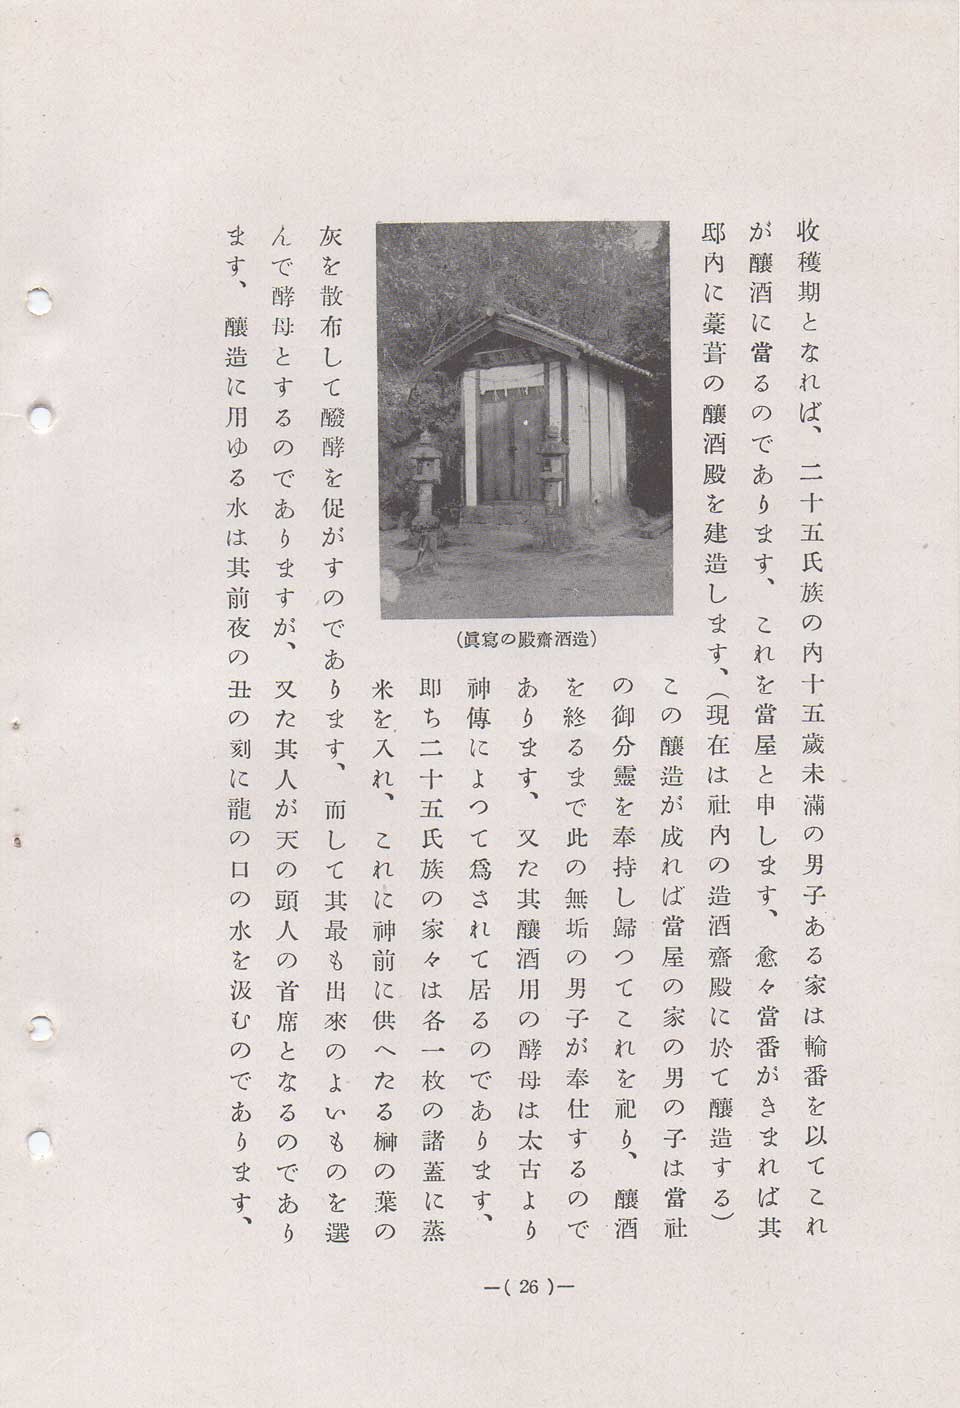 收穫期となれば、二十五氏族の內十五歲未滿の男子ある家は輪番を以てこれ
が釀酒に當るのであります、これを當屋と申します、愈々當番がきまれば其
邸內に藁葺の釀酒殿を建造します、（現在は社內の造酒齋殿に於て釀造する）
この釀造が成れば當屋の家の男の子は當社
の御分靈を奉持し歸つてこれを祀り、釀酒
を終るまで此の無垢の男子が奉仕するので
あります、又た其釀酒用の酵母は太古より
神傳によつて爲されて居るのであります、
卽ち二十五氏族の家々は各一枚の諸蓋に蒸
米を入れ、これに神前に供へたる榊の葉の
灰を散布して醱酵を促がすのであります、而して其最も出來のよいものを選
んで酵母とするのでありますが、又た其人が天の頭人の首席となるのであり
ます、釀造に用ゆる水は其前夜の丑の刻に龍の口の水を汲むのであります、
（眞寫の殿齋酒造）
—( 26 )—